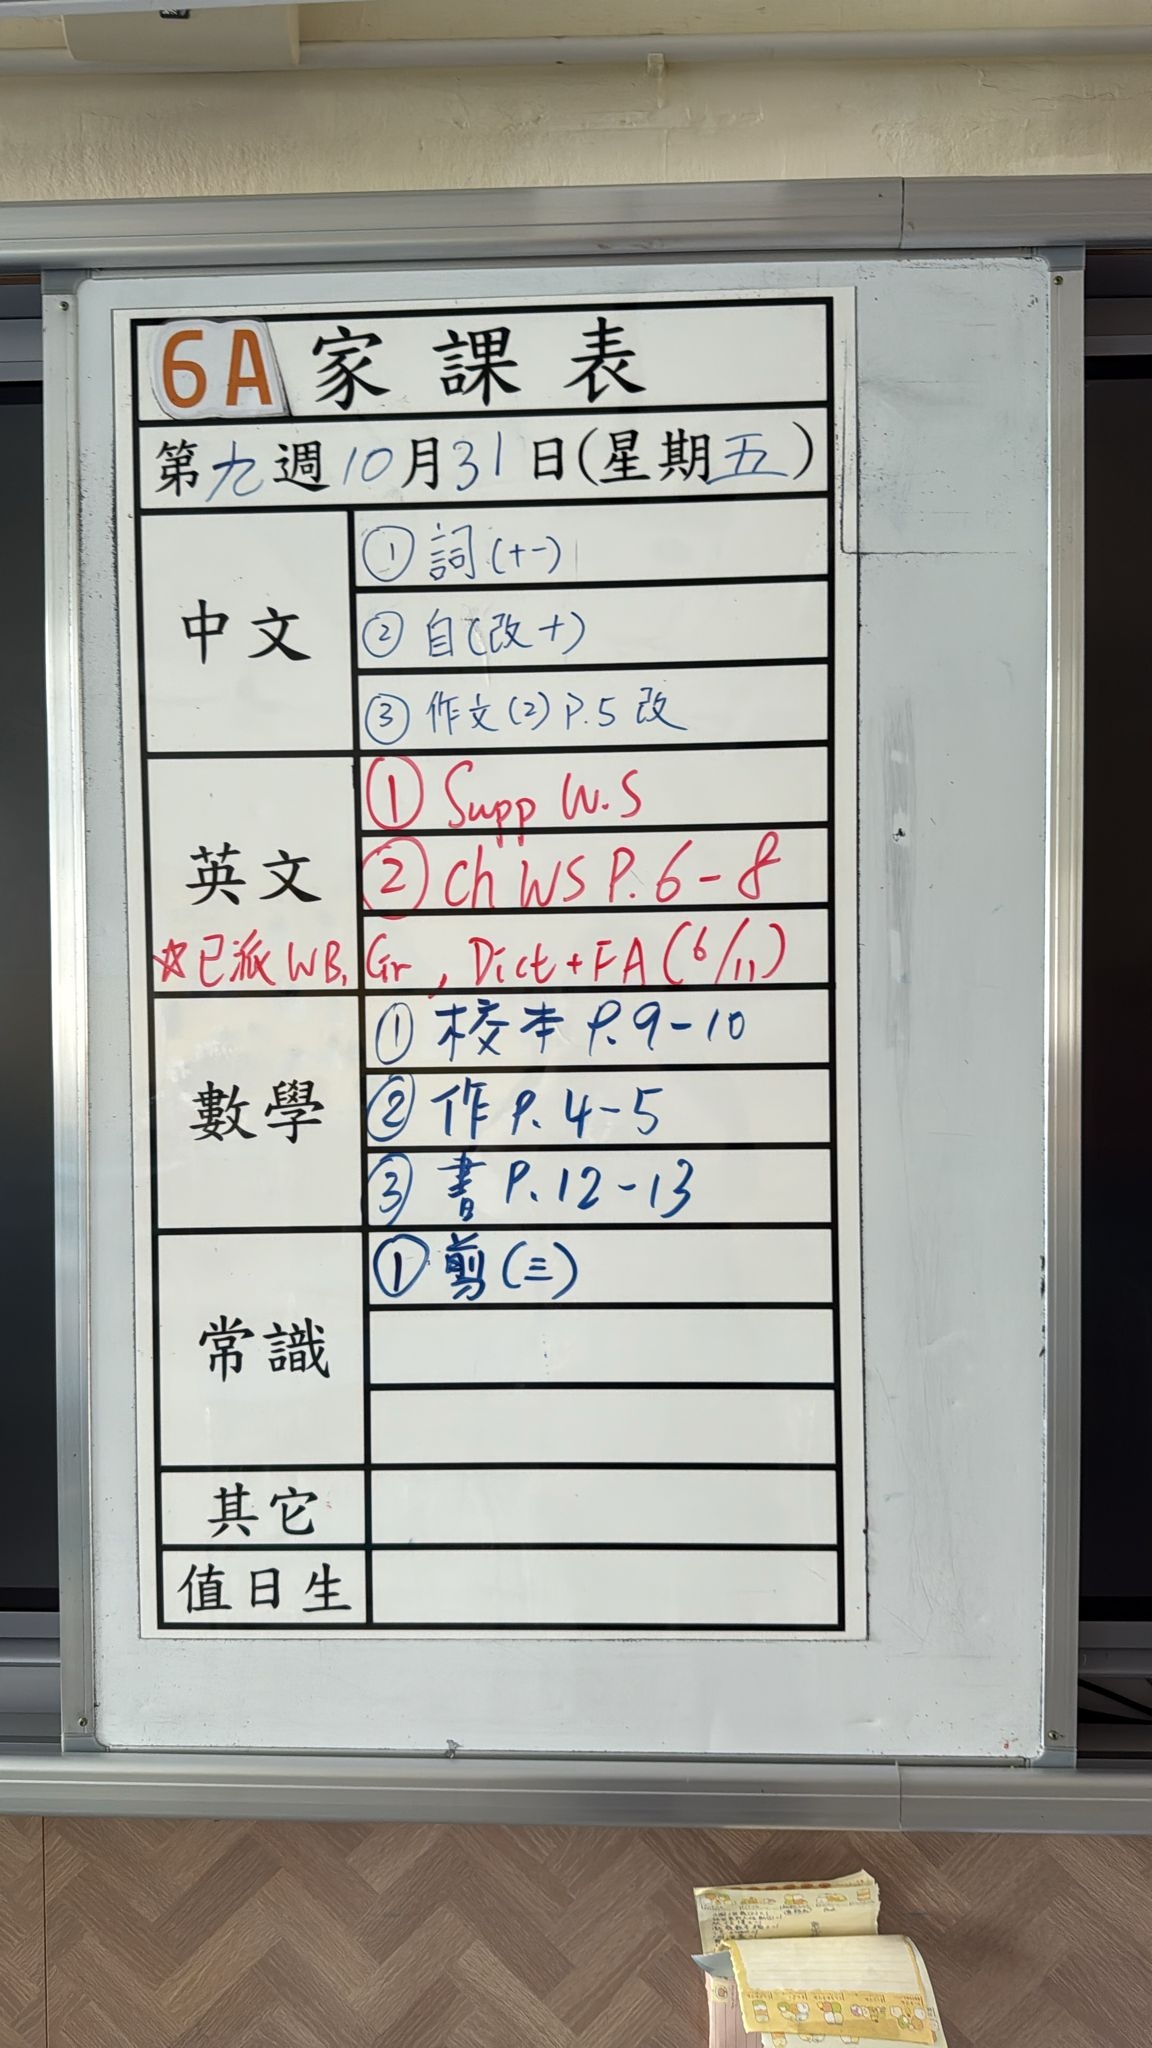 6A 家課表
第九週10月31日(星期五)
中文
① 詞(十一)
② 自(改十)
③ 作文(2) P.5 改
英文
① Supp W.S
② Ch WS P. 6-8
☆已派 WB, Gr, Dict + FA (6/11)
數學
① 校本 P. 9-10
② 作 P. 4-5
③ 書 P. 12-13
常識
① 剪(三)
其它
值日生